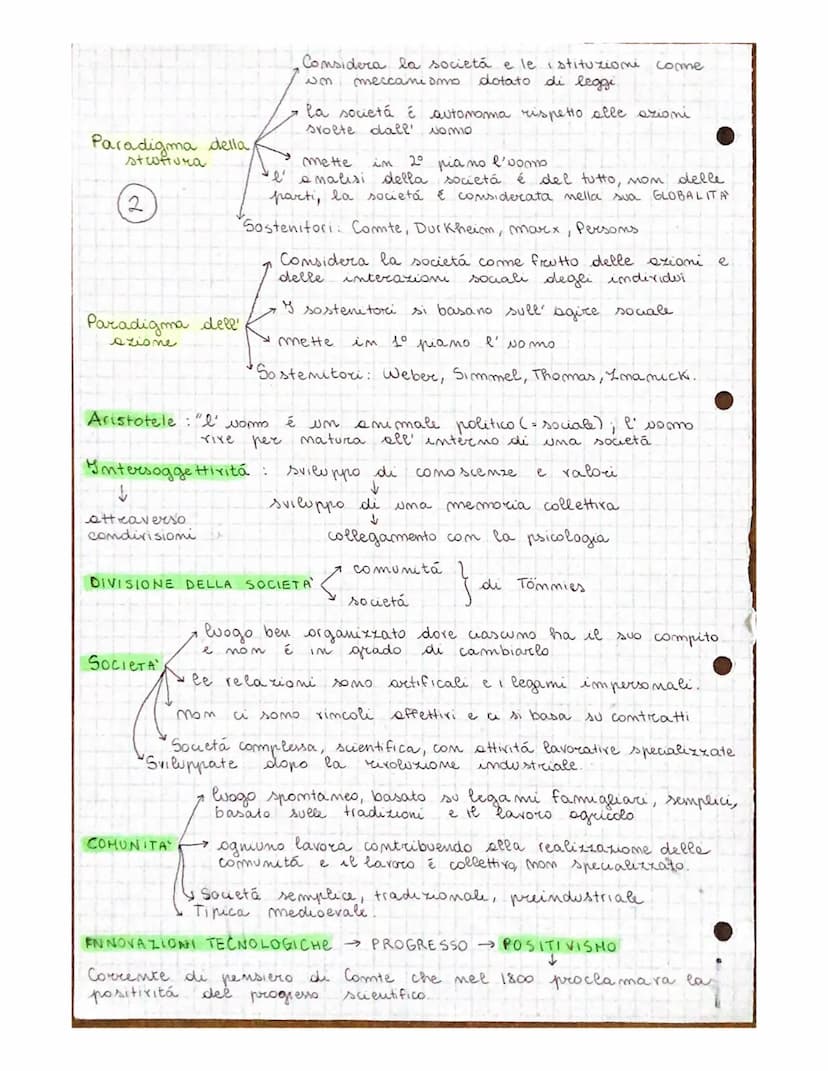 Considera la societá e le istituzioni come
un meccanismo dotato di leggi
la societá é autonoma rispetto alle azioni
svolte dall' uomo
Paradigma della
struttura
mette in 2° piano l'uomo
l' analisi della societá é del tutto, non delle
parti, la societá é considerata nella sua GLOBALITA'
2
Sostenitori: Comte, Durkheim, Marx, Persons
Considera la societá come frutto delle azioni e
delle interazioni sociali degli individui
I sostenitori si basano sull' agire sociale
Paradigma dell'
azione
mette in 1° piano l' uomo
Sostenitori: Weber, Simmel, Thomas, Znanick.
Aristotele : "l' uomo é un animale politico (= sociale) ; l' uomo
vive per natura all' interno di una societá
Intersoggettivitá : sviluppo di conoscenze e valori
sviluppo di una memoria collettiva
attraverso
condivisioni
collegamento con la psicologia
DIVISIONE DELLA SOCIETA'
comunitá
societá
di Tönnies
luogo ben organizzato dove ciascuno ha il suo compito
e non é in grado di cambiarlo
SOCIETA'
le relazioni sono artificali e i legami impersonali.
non ci sono vincoli affettivi e ci si basa su contratti
Societá complessa, scientifica, con attivitá lavorative specializzate
Sviluppate dopo la rivoluzione industriale.
luogo spontaneo, basato su legami famigliari, semplici,
basato sulle tradizioni e il lavoro agricolo
COMUNITA'
ognuno lavora contribuendo alla realizzazione della
comunitá e il lavoro é collettivo, non specializzato.
Societá semplice, tradizionale, preindustriale
Tipica medioevale.
INNOVAZIONI TECNOLOGICHE → PROGRESSO → POSITIVISMO
Corrente di pensiero di Comte che nel 1800 proclamava la
positivitá del progresso scientifico.